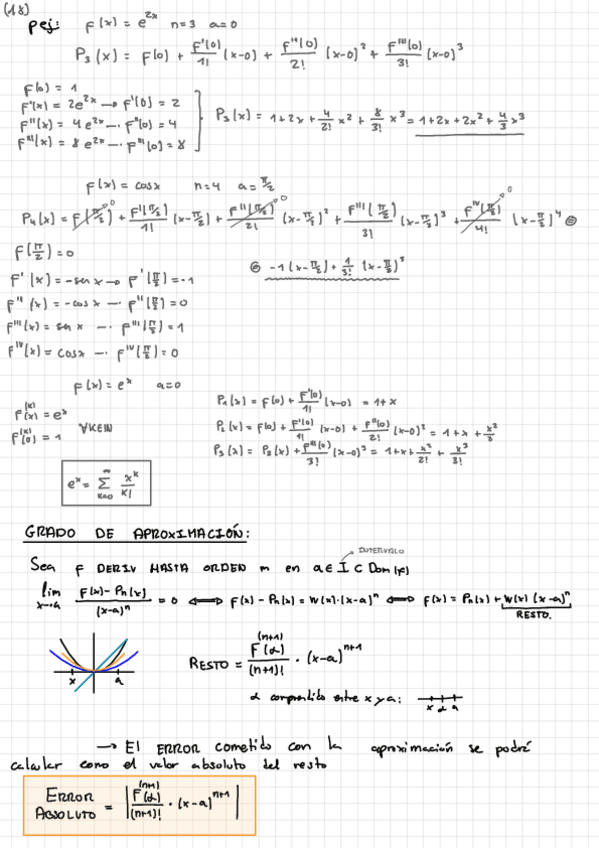 (18)
pej: f(x) = e^{2x} n=3 a=0
P₃(x) = f(0) + F'(0)/1! (x-0) + F''(0)/2! (x-0)² + F'''(0)/3! (x-0)³
F(0) = 1
F'(x) = 2e^{2x} → F'(0) = 2
F''(x) = 4e^{2x} —· F''(0) = 4
F'''(x) = 8e^{2x} —· F'''(0) = 8
P₃(x) = 1+2x+ 4/2! x² + 8/3! x³ = 1+2x+2x²+ 4/3 x³
f(x) = cosx n=4 a= π/2
P₄(x) = F(π/2)⁰ + F'(π/2)/1! (x-π/2) + F''(π/2)/2!⁰ (x-π/2)² + F'''(π/2)/3! (x-π/2)³ + F^{IV}(π/2)/4!⁰ (x-π/2)⁴ ⊜
F(π/2) = 0
F'(x) = -sen x → F'(π/2) = -1
⊜ -1(x-π/2) + 1/3! (x-π/2)³
F''(x) = -cos x —· F''(π/2) = 0
F'''(x) = sen x —· F'''(π/2) = 1
F^{IV}(x) = cosx —· F^{IV}(π/2) = 0
f(x) = e^x a=0
F^{(K)}(x) = e^x
F^{(K)}(0) = 1 ∀K∈N
P₁(x) = F(0) + F'(0)/1! (x-0) = 1+x
P₂(x) = F(0) + F'(0)/1! (x-0) + F''(0)/2! (x-0)² = 1+x+ x²/2
P₃(x) = P₂(x) + F'''(0)/3! (x-0)³ = 1+x+ x²/2! + x³/3!
e^x = ∑_{K=0}^{∞} x^K/K!
GRADO DE APROXIMACIÓN:
INTERVALO
Sea f DERIV HASTA ORDEN n en a∈I⊂Dom(f)
lim_{x→a} F(x)-Pn(x)/(x-a)^n = 0 ⟺ F(x)-Pn(x) = W(x)·(x-a)^n ⟺ f(x) = Pn(x)+W(x)·(x-a)^n
RESTO.
x a
RESTO = F^{(n+1)}(α)/(n+1)! · (x-a)^{n+1}
α comprendido entre x y a:
x α a
→ El ERROR cometido con la aproximación se podrá
calcular como el valor absoluto del resto
ERROR ABSOLUTO = |F^{(n+1)}(α)/(n+1)! · (x-a)^{n+1}|